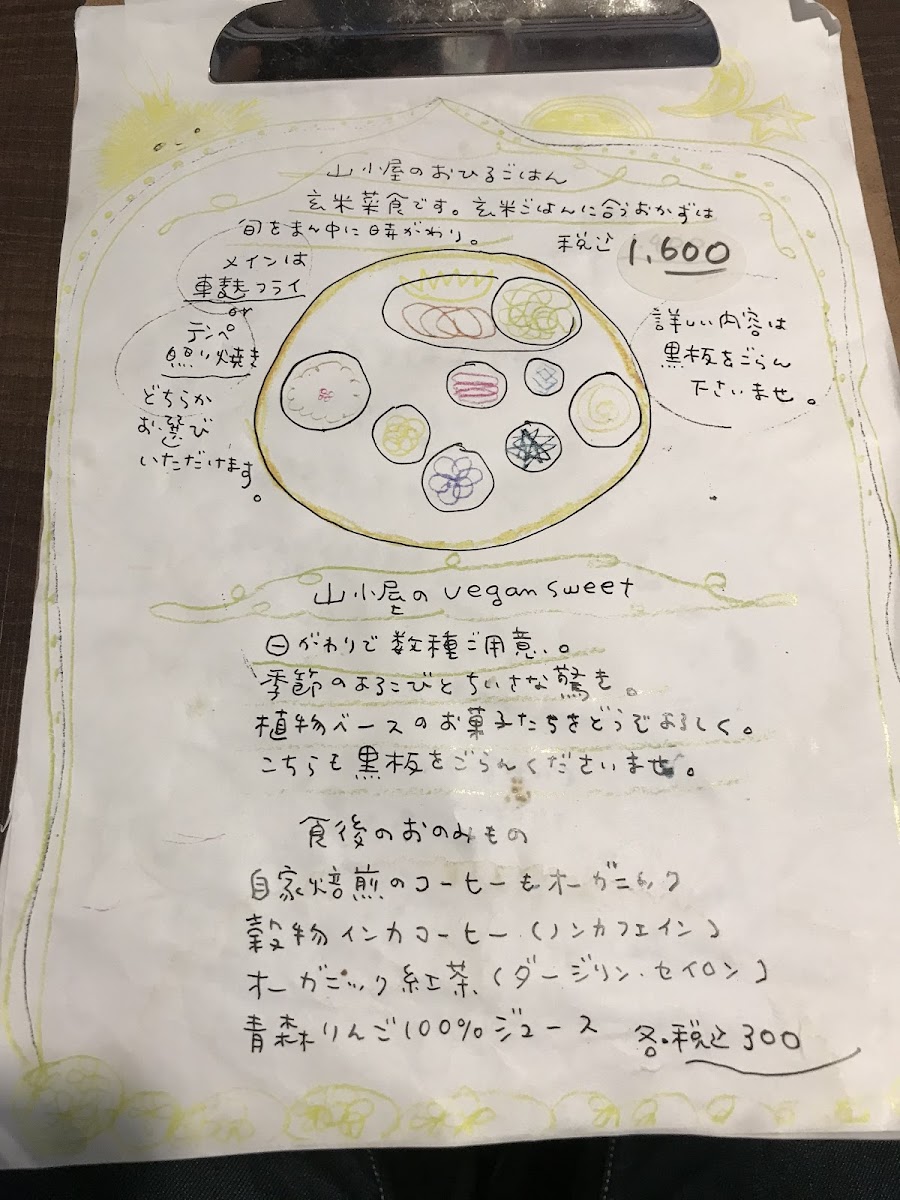 山小屋のおひるごはん
玄米菜食です。玄米ごはんに合うおかずは
旬をまん中に日替がわり。
税込 1,600
メインは
車麩フライ
or
テンペ
照り焼き
どちらか
お選び
いただけます。
詳しい内容は
黒板をごらん
下さいませ。
山小屋の vegan sweet
日がわりで数種ご用意。
季節のよろこびとちいさな驚き。
植物ベースのお菓子たちをどうぞよろしく。
こちらも黒板をごらんくださいませ。
食後のおのみもの
自家焙煎のコーヒーもオーガニック
穀物インカコーヒー(ノンカフェイン)
オーガニック紅茶(ダージリン・セイロン)
青森りんご100%ジュース
各・税込300